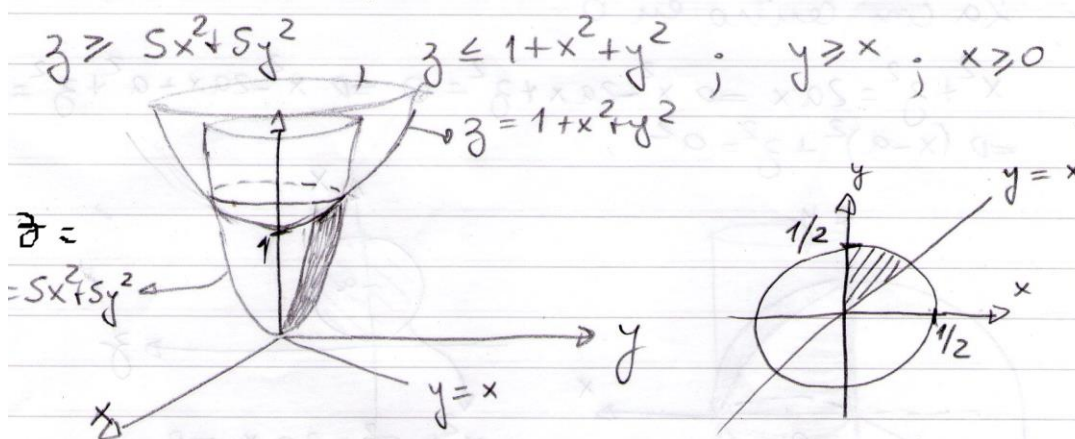 z ≥ 5x²+5y² , z ≤ 1+x²+y² ; y ≥ x ; x ≥ 0
z = 1+x²+y²
z =
= 5x²+5y²
1
x
y
y = x
y
y = x
1/2
x
1/2